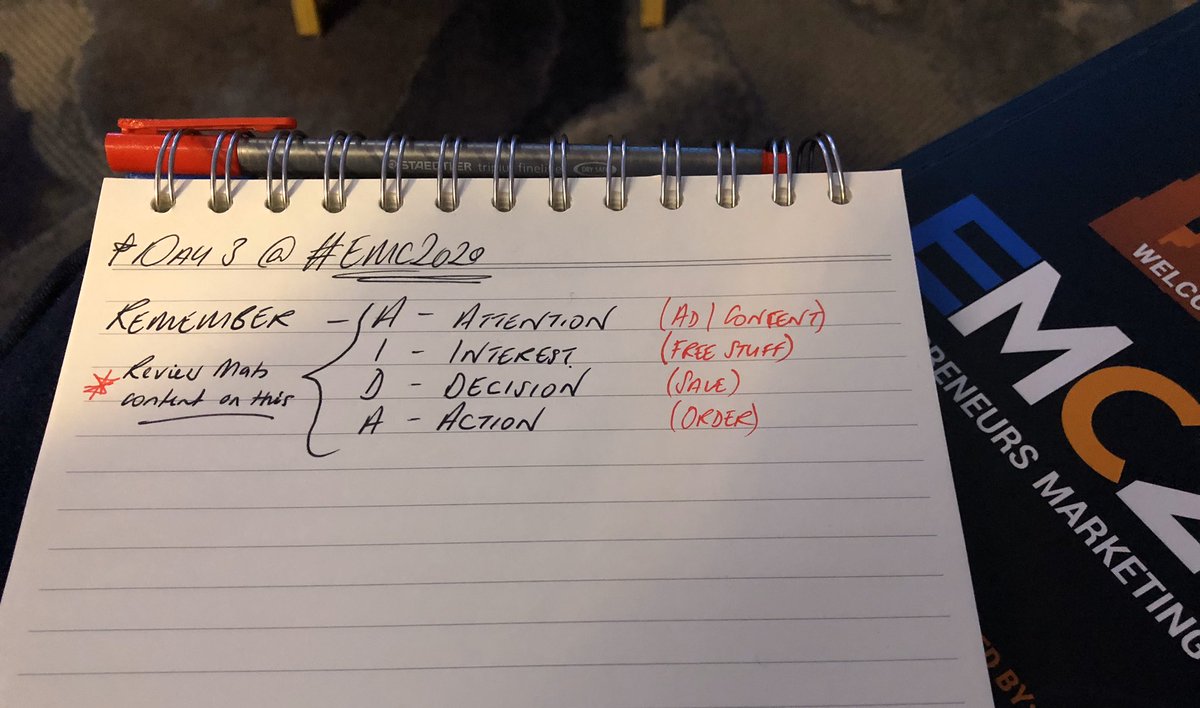 STAEDTLER triplus fineliner DRY SAFE
Day 3 @ #EMC2020
REMEMBER - A - ATTENTION (AD / CONTENT)
I - INTEREST (FREE STUFF)
D - DECISION (SALE)
A - ACTION (ORDER)
* Review
content on this
EMC2
PRENEURS MARKETING
WELCO
ED BY: